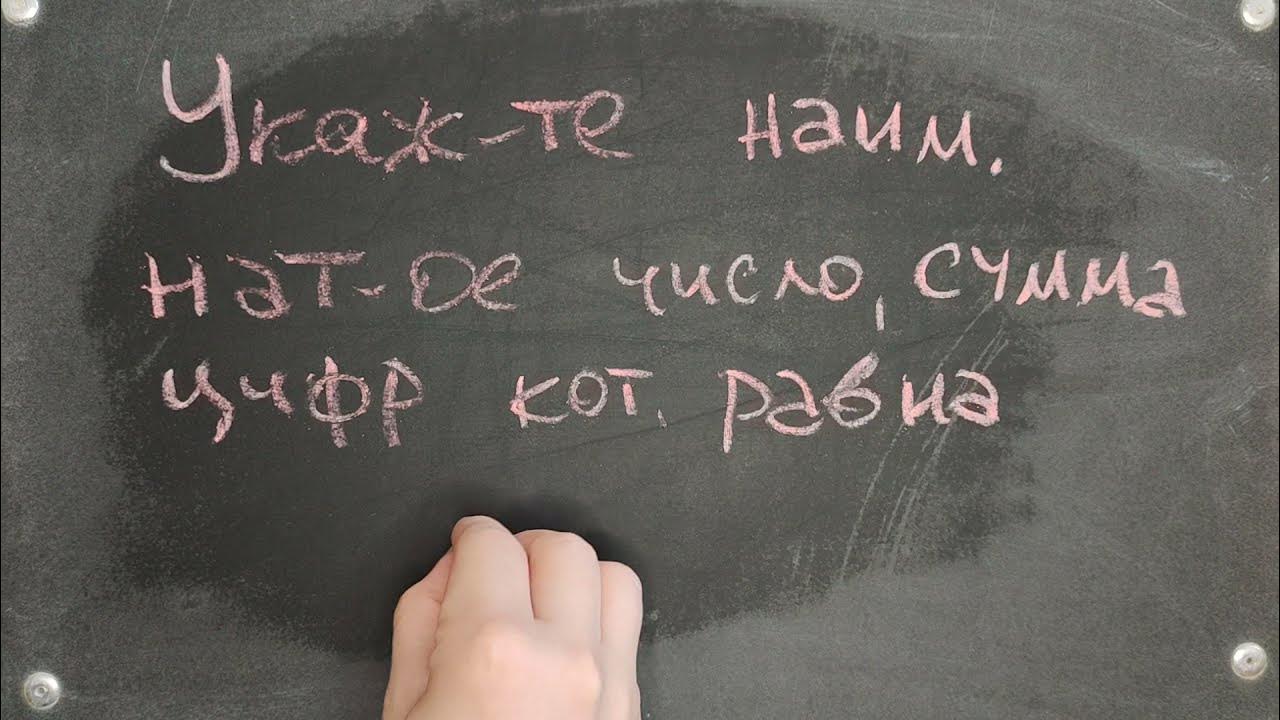 Укаж-те наим.
нат-ое число, сумма
цифр кот. равна